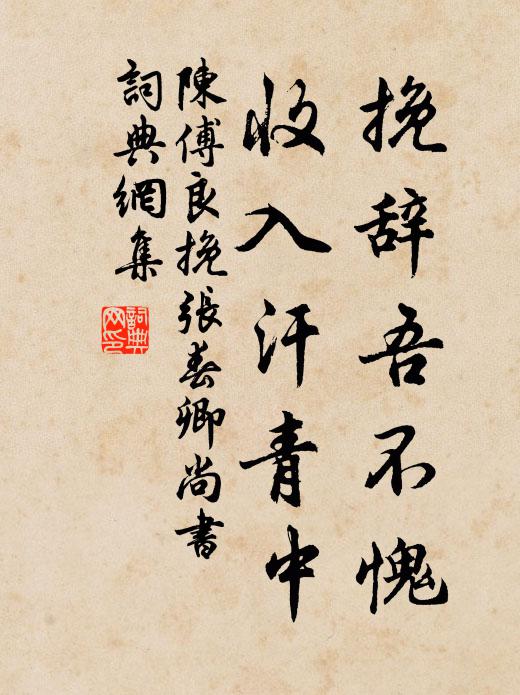 挽辞吾不愧
收入汗青中
陳傅良挽張春卿尚書
詞典網集
詞典
网印